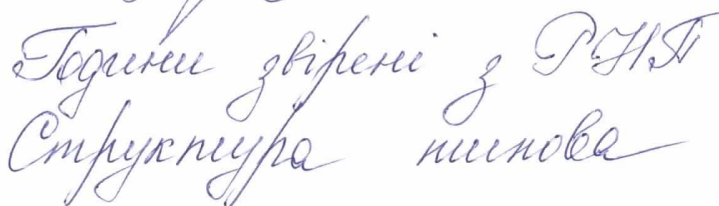 Години звірені з РНП
Структура типова